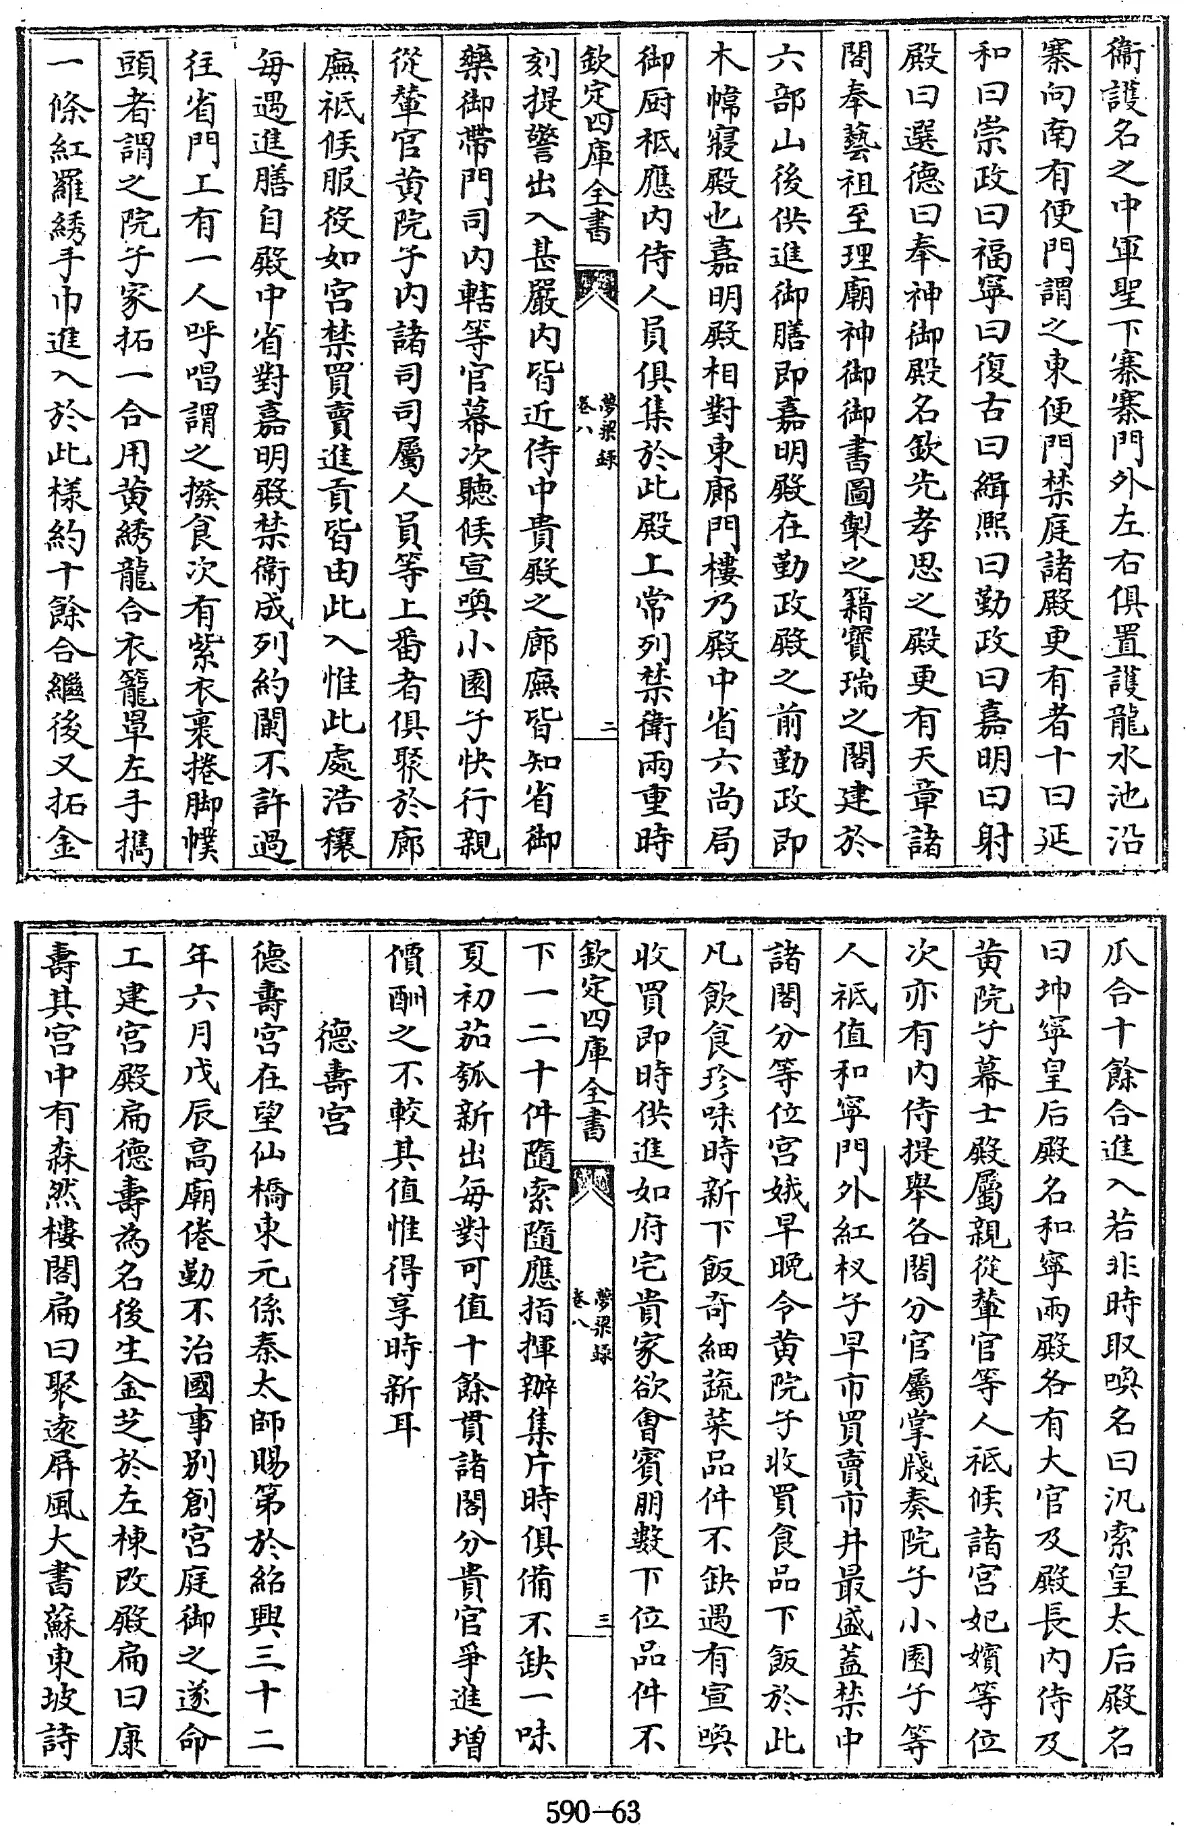 衞護名之中軍聖下寨寨門外左右俱置護龍水池沿
寨向南有便門謂之東便門禁庭諸殿更有者十曰延
和曰崇政曰福寧曰復古曰緝熙曰勤政曰嘉明曰射
殿曰選德曰奉神御殿名欽先孝思之殿更有天章諸
閣奉藝祖至理廟神御御書圖製之籍寳瑞之閣建於
六部山後供進御膳即嘉明殿在勤政殿之前勤政即
木幃寢殿也嘉明殿相對東廊門樓乃殿中省六尚局
御厨祗應内侍人員俱集於此殿上常列禁衞兩重時
欽定四庫全書
夢粱録
卷八
二
刻提警出入甚嚴内皆近侍中貴殿之廊廡皆知省御
藥御帶門司内轄等官幕次聽候宣喚小園子快行親
從輦官黄院子内諸司司屬人員等上番者俱聚於廊
廡祗候服役如宮禁買賣進貢皆由此入惟此處浩穰
每遇進膳自殿中省對嘉明殿禁衞成列約闌不許過
往省門上有一人呼唱謂之撥食次有紫衣裹捲脚幞
頭者謂之院子家拓一合用黄綉龍合衣籠罩左手攜
一條紅羅綉手巾進入於此様約十餘合繼後又拓金
瓜合十餘合進入若非時取喚名曰汎索皇太后殿名
曰坤寧皇后殿名和寧兩殿各有大官及殿長内侍及
黄院子幕士殿屬親從輦官等人祗候諸宮妃嬪等位
次亦有内侍提舉各閣分官屬掌牋奏院子小園子等
人祗值和寧門外紅杈子早市買賣市井最盛蓋禁中
諸閣分等位宮娥早晚令黄院子收買食品下飯於此
凡飲食珍味時新下飯奇細蔬菜品件不缺遇有宣喚
收買即時供進如府宅貴家欲會賓朋數下位品件不
欽定四庫全書
夢粱録
卷八
三
下一二十件隨索隨應指揮辦集片時俱備不缺一味
夏初茄瓠新出每對可值十餘貫諸閣分貴官爭進増
價酬之不較其值惟得享時新耳
德壽宮
德壽宮在望仙橋東元係秦太師賜第於紹興三十二
年六月戊辰高廟倦勤不治國事别創宮庭御之遂命
工建宮殿扁德壽為名後生金芝於左棟改殿扁曰康
壽其宮中有森然樓閣扁曰聚逺屏風大書蘇東坡詩
590-63